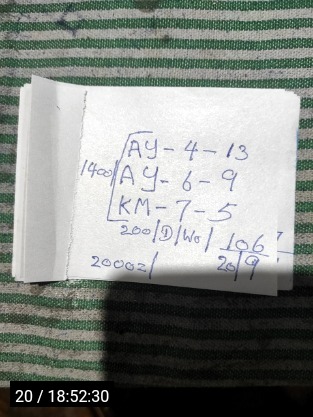 AY-4-13
1400/ AY-6-9
KM-7-5
200/D/Wo/ 106
2000z/ 20/9
20 / 18:52:30